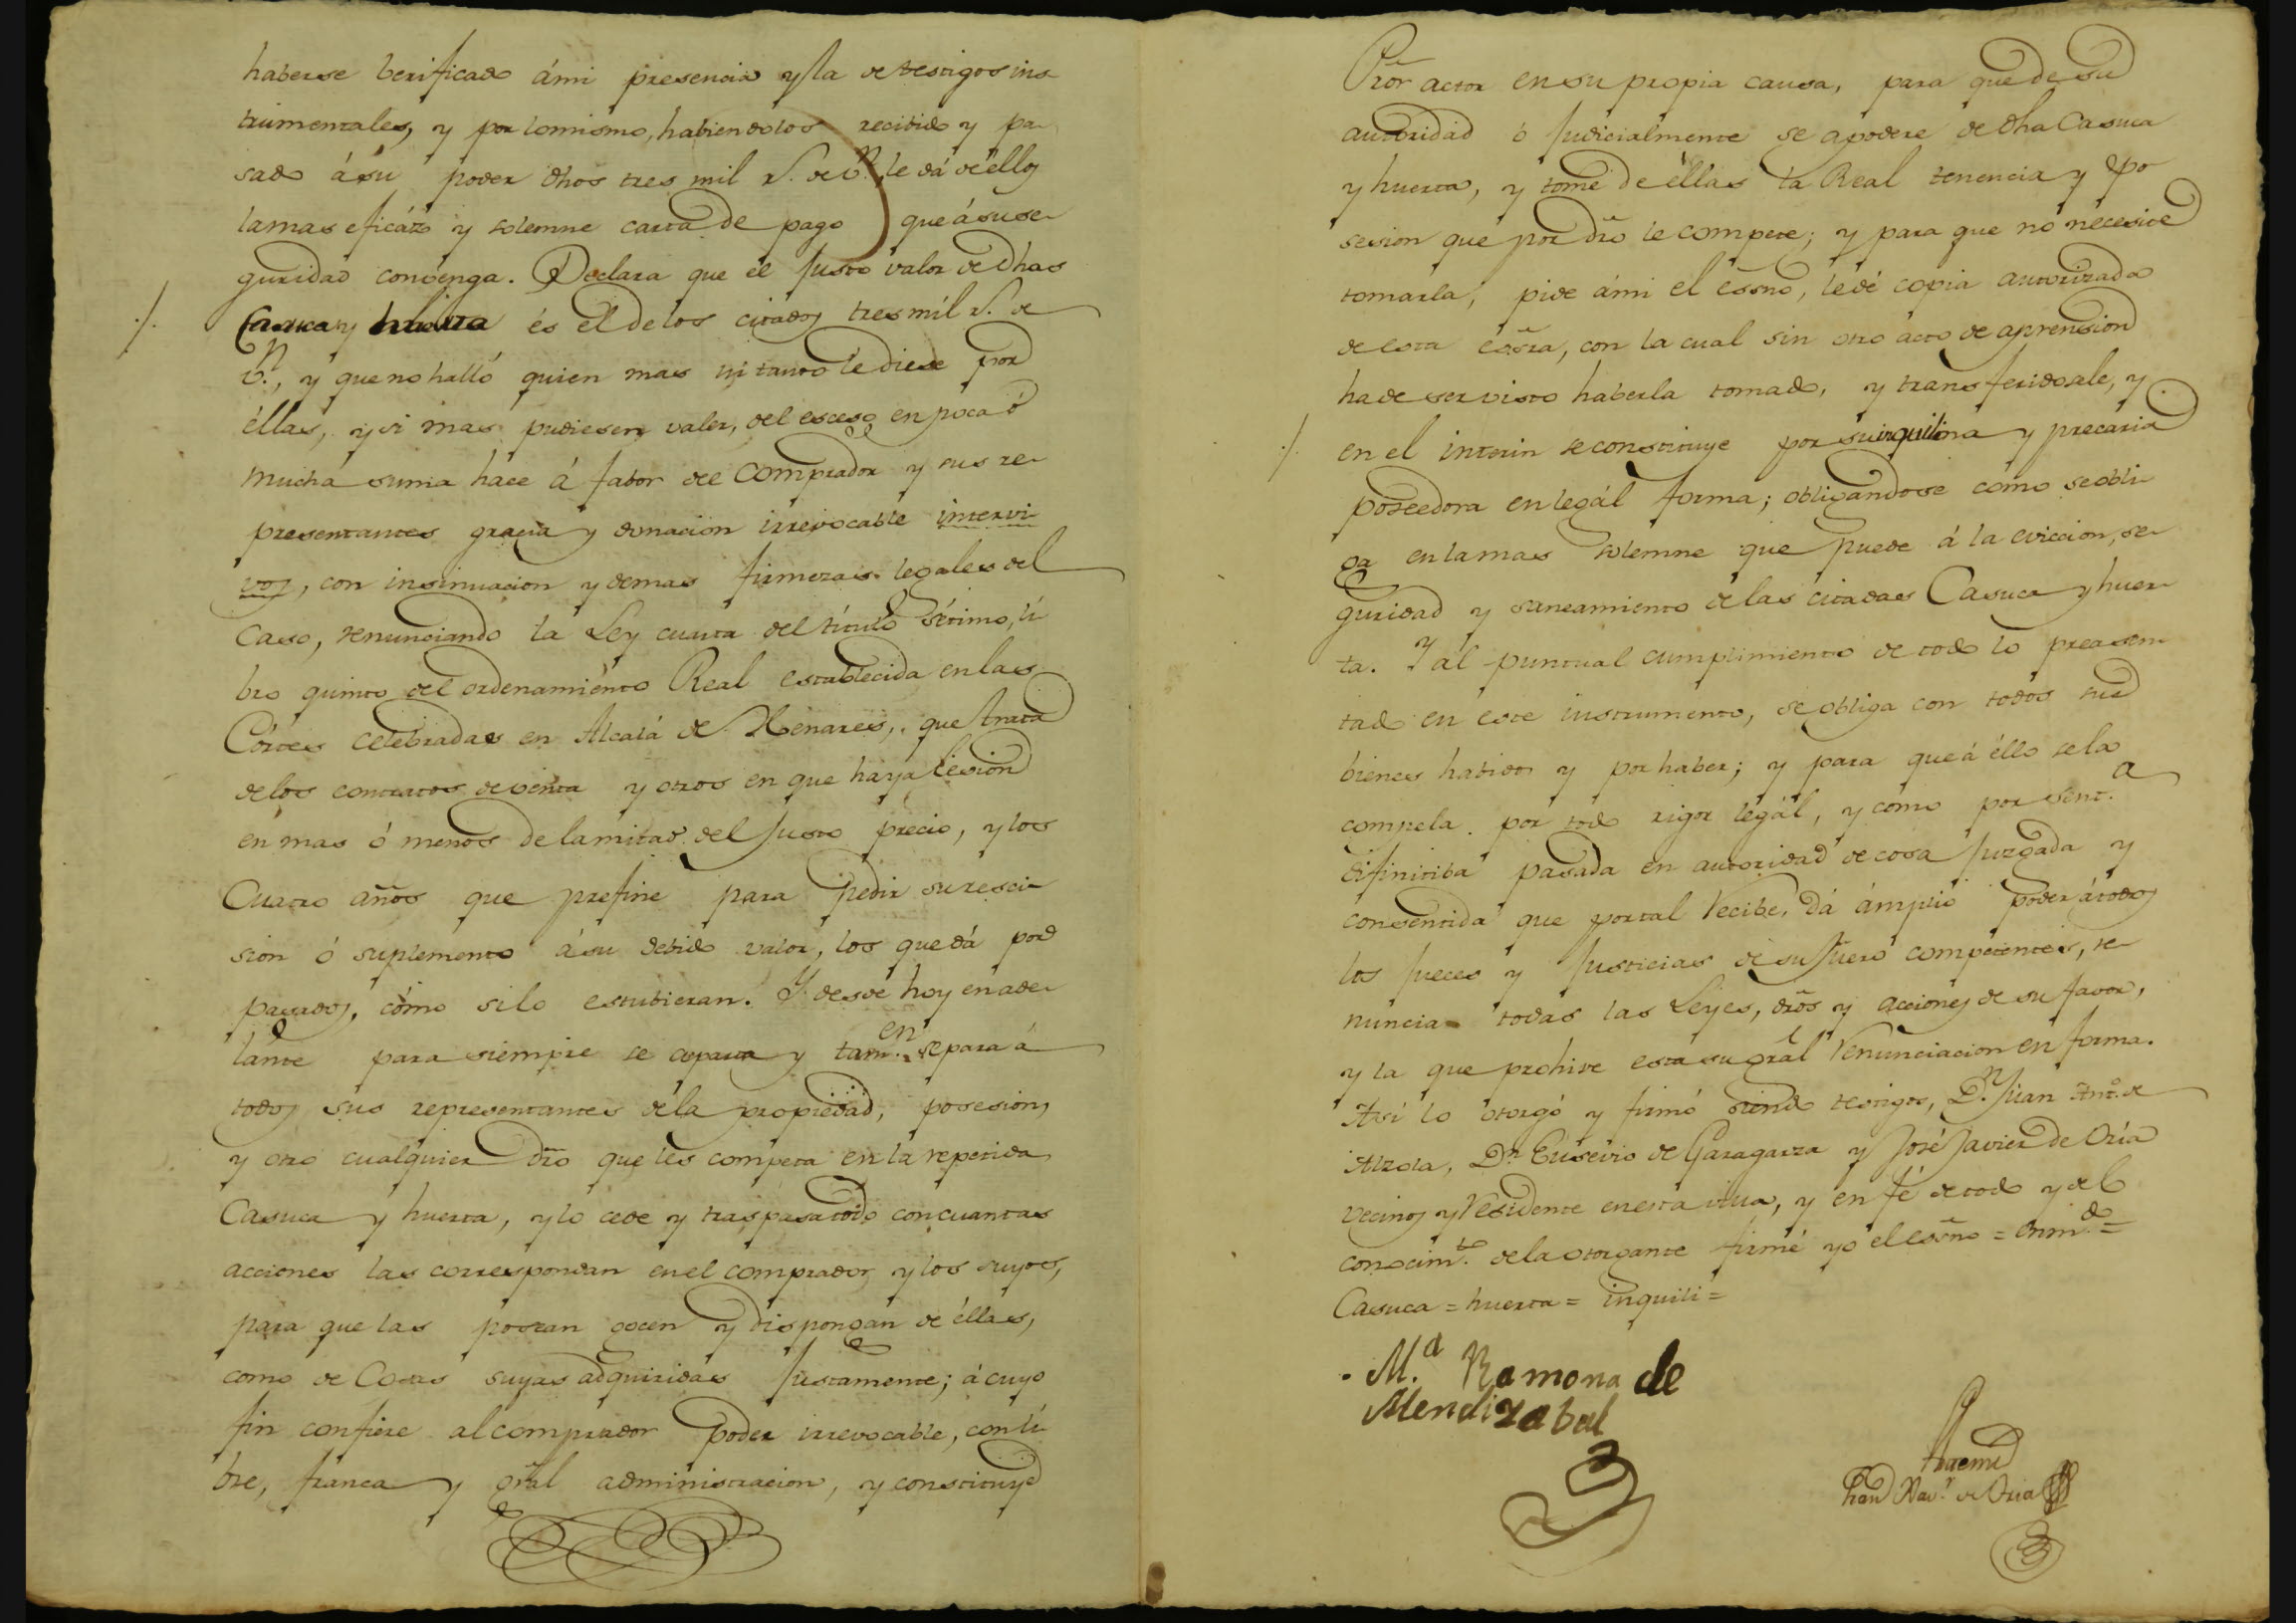 haberse berificado ámi presencia y la de testigos ins-
trumentales, y por lo mismo, habiendolos recibido y pa-
sado á su poder dhos tres mil r.s de v.n, le dá de éllos
la mas eficáz y solemne carta de pago que á su se-
guridad convenga. Declara que el justo valor de dhas
Casuca y huerta és el de los citados tres mil r.s de
v.n, y que no halló quien mas ni tanto le diese por
éllas, y si mas pudiesen valer, del esceso en poca ó
mucha suma hace á fabor del comprador y sus re-
presentantes gracia y donacion irrevocable intervi-
vos, con insinuacion y demas firmezas legales del
caso, renunciando la Ley cuarta del título sétimo, li-
bro quinto del ordenamiento Real establecida en las
Córtes celebradas en Alcalá de Henares, que trata
de los contratos de venta y otros en que haya lesion
en mas ó menos de la mitad del justo précio, y los
cuatro años que prefine para pedir su resci-
sion ó suplemento á su debido valor, los que dá por
pasados, cómo si lo estubieran. Y desde hoy en ade-
lante para siempre se aparta y tam.en separa á
todos sus representantes de la propiedad, posesion,
y otro cualquier dro que les competa en la repetida
Casuca y huerta, y lo cede y traspasa todo con cuantas
acciones las correspondan en el comprador, y los suyos,
para que las posean gocen y dispongan de éllas,
como de Cosas suyas adquiridas justamente; á cuyo
fin confiere al comprador poder irrevocable, con li-
bre, franca y gral administracion, y constituye
Pror actor en su propia causa, para que de su
autoridad ó judicialmente se apodere de dha Casuca
y huerta, y tome de éllas la Real tenencia y po-
sesion que por dro le compete; y para que no necesite
tomarla, pide ámi el essno, le dé copia autorizada
de esta essra, con la cual sin otro acto de aprension
ha de ser visto haberla tomado, y transferidosele, y
en el interin se constituye por su inquilina y precaria
poseedora en legál forma; obligandose cómo se obli-
ga en la mas solemne que puede á la eviccion, se-
guridad y saneamiento de las citadas Casuca y huer-
ta. Y al puntual cumplimiento de todo lo preasen-
tado en este instrumento, se obliga con todos sus
bienes habidos y por haber; y para que á éllo se la
compela por todo rigor legál, y cómo por sent.a
difinitiba pasada en autoridad de cosa juzgada y
consentida que por tal recibe, dá ámplio poder á todos
los jueces y justicias de su fuero competentes, re-
nuncia todas las Leyes, dros y acciones de su favor,
y la que prohive esta su gral renunciacion en forma.
Así lo otorgó y firmó siendo testigos, D.n Juan Ant.o de
Alzola, D.n Eusevio de Garagarza y José Javier de Oria
vecinos y residente en esta villa, y en fé de todo y del
conocim.to de la otorgante firmé yo el essno = enm.do =
Casuca = huerta = inquili =
M.a Ramona de
Mendizabal
Antemi
Fran.co Xav.r de Oria